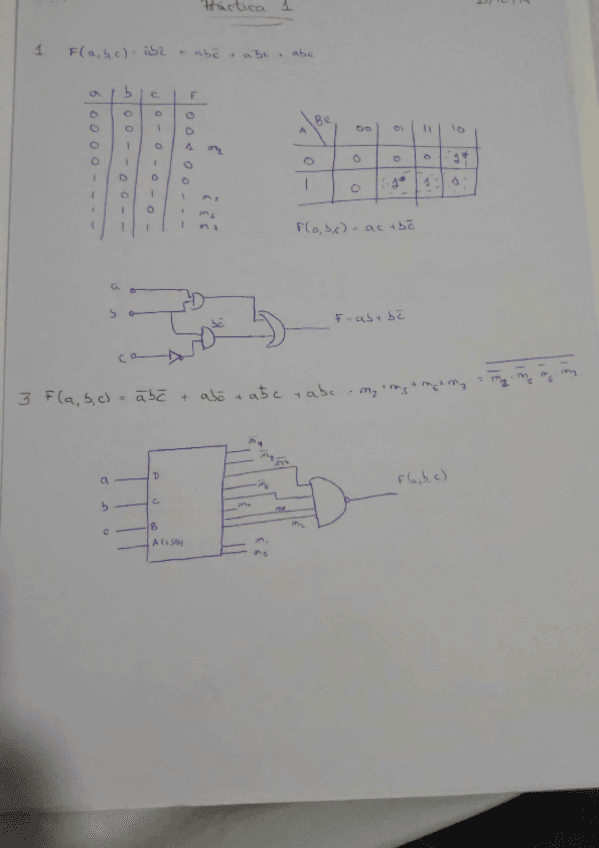 Práctica 1
1 F(a,b,c) = a̅bc̅ + abc̅ + ab̅c + abc
a b c F
0 0 0 0
0 0 1 0
0 1 0 1 m₂
0 1 1 0
1 0 0 0
1 0 1 1 m₅
1 1 0 1 m₆
1 1 1 1 m₇
A \ BC 00 01 11 10
0 0 0 0 1*
1 0 1* 1 1
F(a,b,c) = ac + bc̅
a
b
bc̅
c
F = ab + bc̅
3 F(a,b,c) = a̅bc̅ + abc̅ + ab̅c + abc = m₂ + m₅ + m₆ + m₇ = m̅₂ · m̅₅ m̅₆ · m̅₇
m̅₉
m̅₈
m̅₇
a D
b C
c B
A (LSB)
F(a,b,c)
m₂
m̅₁
m̅₀